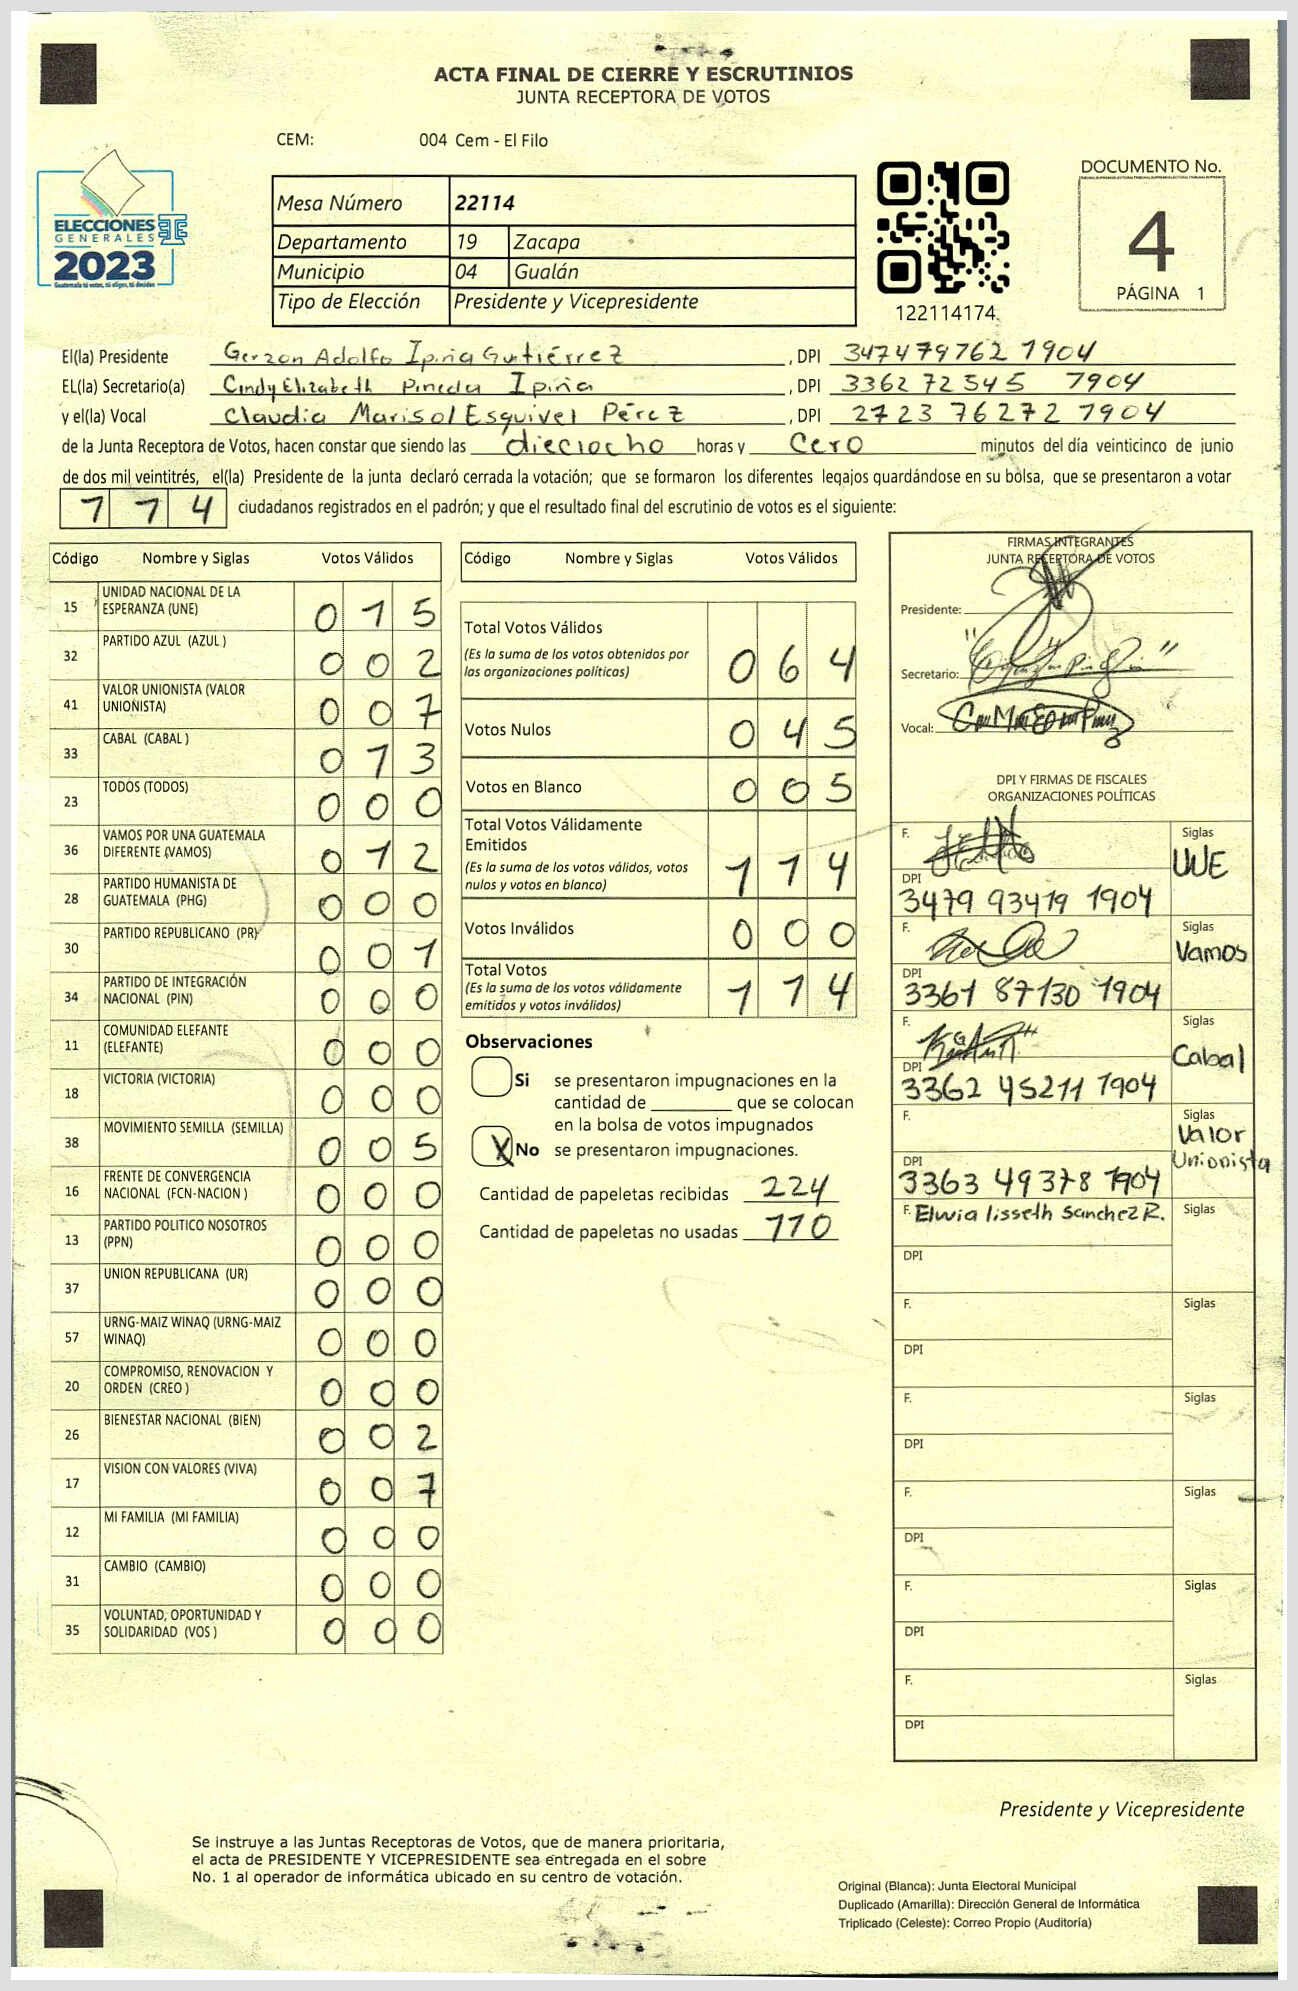 ACTA FINAL DE CIERRE Y ESCRUTINIOS
JUNTA RECEPTORA DE VOTOS
CEM: 004 Cem - El Filo
ELECCIONES
GENERALES
2023
Guatemala tú votas, tú eliges, tú decides
Mesa Número 22114
Departamento 19 Zacapa
Municipio 04 Gualán
Tipo de Elección Presidente y Vicepresidente
122114174
DOCUMENTO No.
4
PÁGINA 1
El(la) Presidente Gerzon Adolfo Ipiña Gutiérrez , DPI 347479762 1904
EL(la) Secretario(a) Cindy Elizabeth Pineda Ipiña , DPI 336272545 1904
y el(la) Vocal Claudia Marisol Esquivel Pérez , DPI 2723 76272 1904
de la Junta Receptora de Votos, hacen constar que siendo las dieciocho horas y cero minutos del día veinticinco de junio
de dos mil veintitrés, el(la) Presidente de la junta declaró cerrada la votación; que se formaron los diferentes legajos guardándose en su bolsa, que se presentaron a votar
1 1 4 ciudadanos registrados en el padrón; y que el resultado final del escrutinio de votos es el siguiente:
Código Nombre y Siglas Votos Válidos
15 UNIDAD NACIONAL DE LA
ESPERANZA (UNE) 0 1 5
32 PARTIDO AZUL (AZUL ) 0 0 2
41 VALOR UNIONISTA (VALOR
UNIONISTA) 0 0 7
33 CABAL (CABAL ) 0 1 3
23 TODOS (TODOS) 0 0 0
36 VAMOS POR UNA GUATEMALA
DIFERENTE (VAMOS) 0 1 2
28 PARTIDO HUMANISTA DE
GUATEMALA (PHG) 0 0 0
30 PARTIDO REPUBLICANO (PR) 0 0 1
34 PARTIDO DE INTEGRACIÓN
NACIONAL (PIN) 0 0 0
11 COMUNIDAD ELEFANTE
(ELEFANTE) 0 0 0
18 VICTORIA (VICTORIA) 0 0 0
38 MOVIMIENTO SEMILLA (SEMILLA) 0 0 5
16 FRENTE DE CONVERGENCIA
NACIONAL (FCN-NACION ) 0 0 0
13 PARTIDO POLITICO NOSOTROS
(PPN) 0 0 0
37 UNION REPUBLICANA (UR) 0 0 0
57 URNG-MAIZ WINAQ (URNG-MAIZ
WINAQ) 0 0 0
20 COMPROMISO, RENOVACION Y
ORDEN (CREO ) 0 0 0
26 BIENESTAR NACIONAL (BIEN) 0 0 2
17 VISION CON VALORES (VIVA) 0 0 7
12 MI FAMILIA (MI FAMILIA) 0 0 0
31 CAMBIO (CAMBIO) 0 0 0
35 VOLUNTAD, OPORTUNIDAD Y
SOLIDARIDAD (VOS ) 0 0 0
Código Nombre y Siglas Votos Válidos
Total Votos Válidos
(Es la suma de los votos obtenidos por
las organizaciones políticas) 0 6 4
Votos Nulos 0 4 5
Votos en Blanco 0 0 5
Total Votos Válidamente
Emitidos
(Es la suma de los votos válidos, votos
nulos y votos en blanco) 1 1 4
Votos Inválidos 0 0 0
Total Votos
(Es la suma de los votos válidamente
emitidos y votos inválidos) 1 1 4
Observaciones
Si se presentaron impugnaciones en la
cantidad de ________ que se colocan
en la bolsa de votos impugnados
X No se presentaron impugnaciones.
Cantidad de papeletas recibidas 224
Cantidad de papeletas no usadas 110
FIRMAS INTEGRANTES
JUNTA RECEPTORA DE VOTOS
Presidente:
Secretario:
Vocal:
DPI Y FIRMAS DE FISCALES
ORGANIZACIONES POLÍTICAS
F. Siglas
UNE
DPI
3479 93419 1904
F. Siglas
Vamos
DPI
3361 87130 1904
F. Siglas
Cabal
DPI
3362 45211 1904
F. Siglas
Valor
Unionista
DPI
3363 49378 1904
F. Elwia lisseth Sanchez R. Siglas
DPI
F. Siglas
DPI
F. Siglas
DPI
F. Siglas
DPI
F. Siglas
DPI
F. Siglas
DPI
Presidente y Vicepresidente
Se instruye a las Juntas Receptoras de Votos, que de manera prioritaria,
el acta de PRESIDENTE Y VICEPRESIDENTE sea entregada en el sobre
No. 1 al operador de informática ubicado en su centro de votación.
Original (Blanca): Junta Electoral Municipal
Duplicado (Amarilla): Dirección General de Informática
Triplicado (Celeste): Correo Propio (Auditoría)